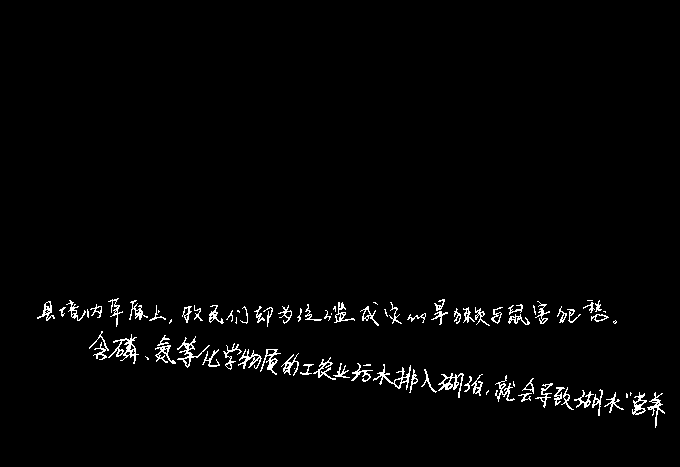 县境内草原上，牧民们却为泛滥成灾的旱獭与鼠害犯愁。
含磷、氮等化学物质的工农业污水排入湖泊，就会导致湖水“营养